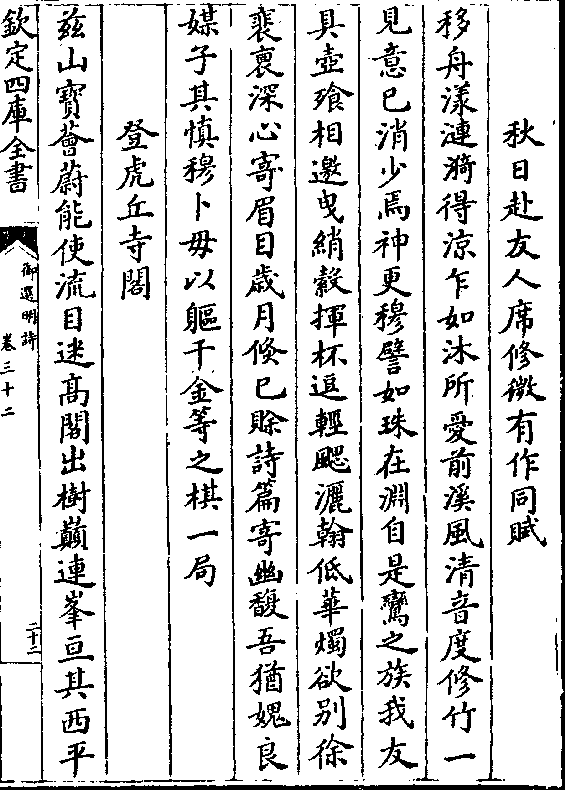 秋日赴友人席修微有作同賦
移舟漾漣漪得涼乍如沐所愛前溪風清音度修竹一
見意已消少焉神更穆譬如珠在淵自是鸞之族我友
具壺飱相邀曳綃縠揮杯逗輕颸灑翰低華燭欲別徐
裴褢深心寄眉目歲月倐已賒詩篇寄幽馥吾猶媿良
媒子其慎穆卜毋以軀千金等之棋一局
登虎丘寺閣
兹山寶薈蔚能使流目迷髙閣出樹巔連峯亘其西平
欽定四庫全書
御選明詩
卷三十二
二十二